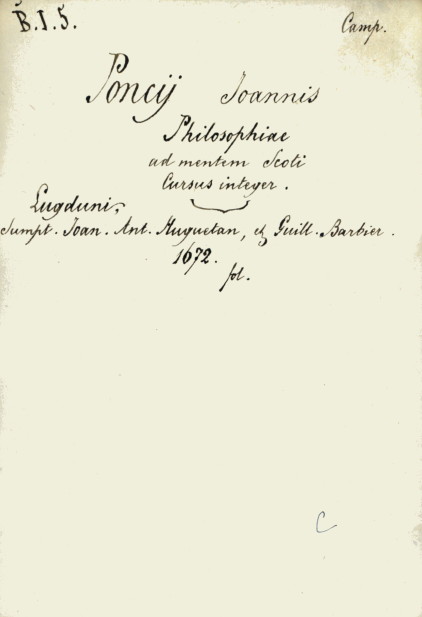 B.I.5. Camp.
Poncij Joannis
Philosophiae
ad mentem Scoti
Cursus integer.
Lugduni,
sumpt. Joan. Ant. Huguetan, et Guill. Barbier.
1672.
fol.
C